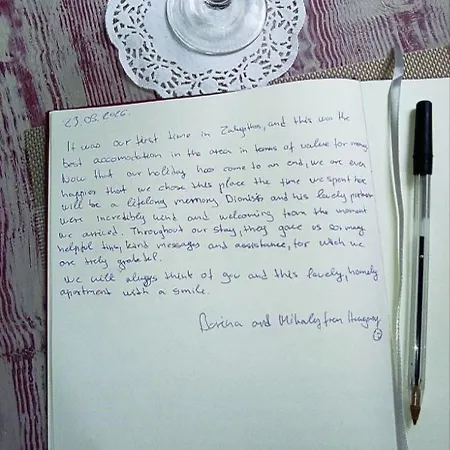 23.08.2025.
It was our first time in Zakynthos, and this was the
best accomodation in the area in terms of value for money.
Now that our holiday has come to an end, we are even
happier that we chose this place the time we spent here
will be a lifelong memory. Dionisis and his lovely partner
were incredibly kind and welcoming from the moment
we arrived. Throughout our stay, they gave us so many
helpful tips, kind messages and assistance, for which we
are truly grateful.
We will always think of you and this lovely, homely
apartment with a smile.
Dorina and Mihaly from Hungary